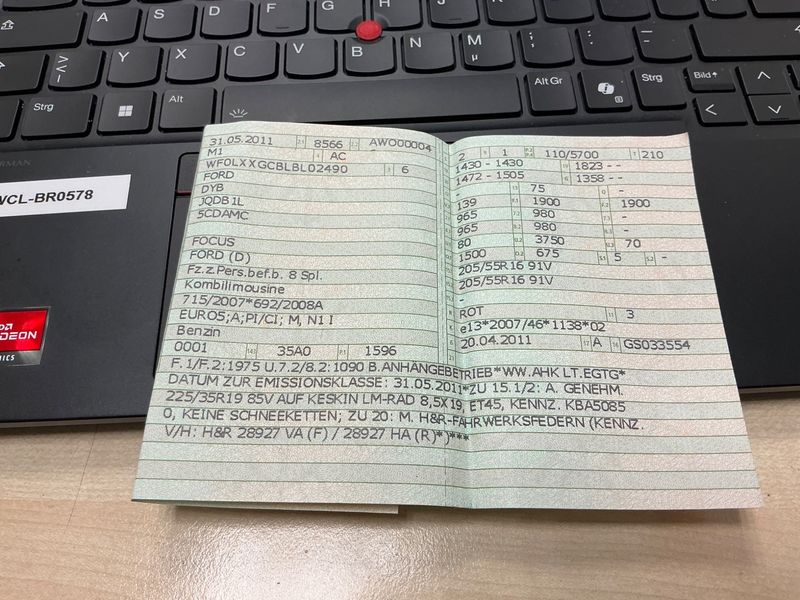 A S D F G H J K L
Y X C V B N M µ ; , : . _ -
Strg Alt Alt Gr Strg Bild
WCL-BR0578
RADEON
31.05.2011 8566 AWO00004
M1 AC
WF0LXXGCBLBL02490 6
FORD
DYB
JQDB1L
5CDAMC
FOCUS
FORD (D)
Fz.z.Pers.bef.b. 8 Spl.
Kombilimousine
715/2007*692/2008A
EURO5;A;PI/CI; M, N1 I
Benzin
0001 35A0 1596
2 1 110/5700 210
1430 - 1430 1823 - -
1472 - 1505 1358 - -
75 -
139 1900 1900
965 980 -
965 980 -
80 3750 70
1500 675 5 -
205/55R16 91V
205/55R16 91V
-
ROT 3
e13*2007/46*1138*02
20.04.2011 A GS033554
F.1/F.2:1975 U.7.2/8.2:1090 B.ANHÄNGEBETRIEB*WW.AHK LT.EGTG*
DATUM ZUR EMISSIONSKLASSE: 31.05.2011*ZU 15.1/2: A. GENEHM.
225/35R19 85V AUF KESKIN LM-RAD 8,5X19, ET45, KENNZ. KBA5085
0, KEINE SCHNEEKETTEN; ZU 20: M. H&R-FAHRWERKSFEDERN (KENNZ.
V/H: H&R 28927 VA (F) / 28927 HA (R)*)***